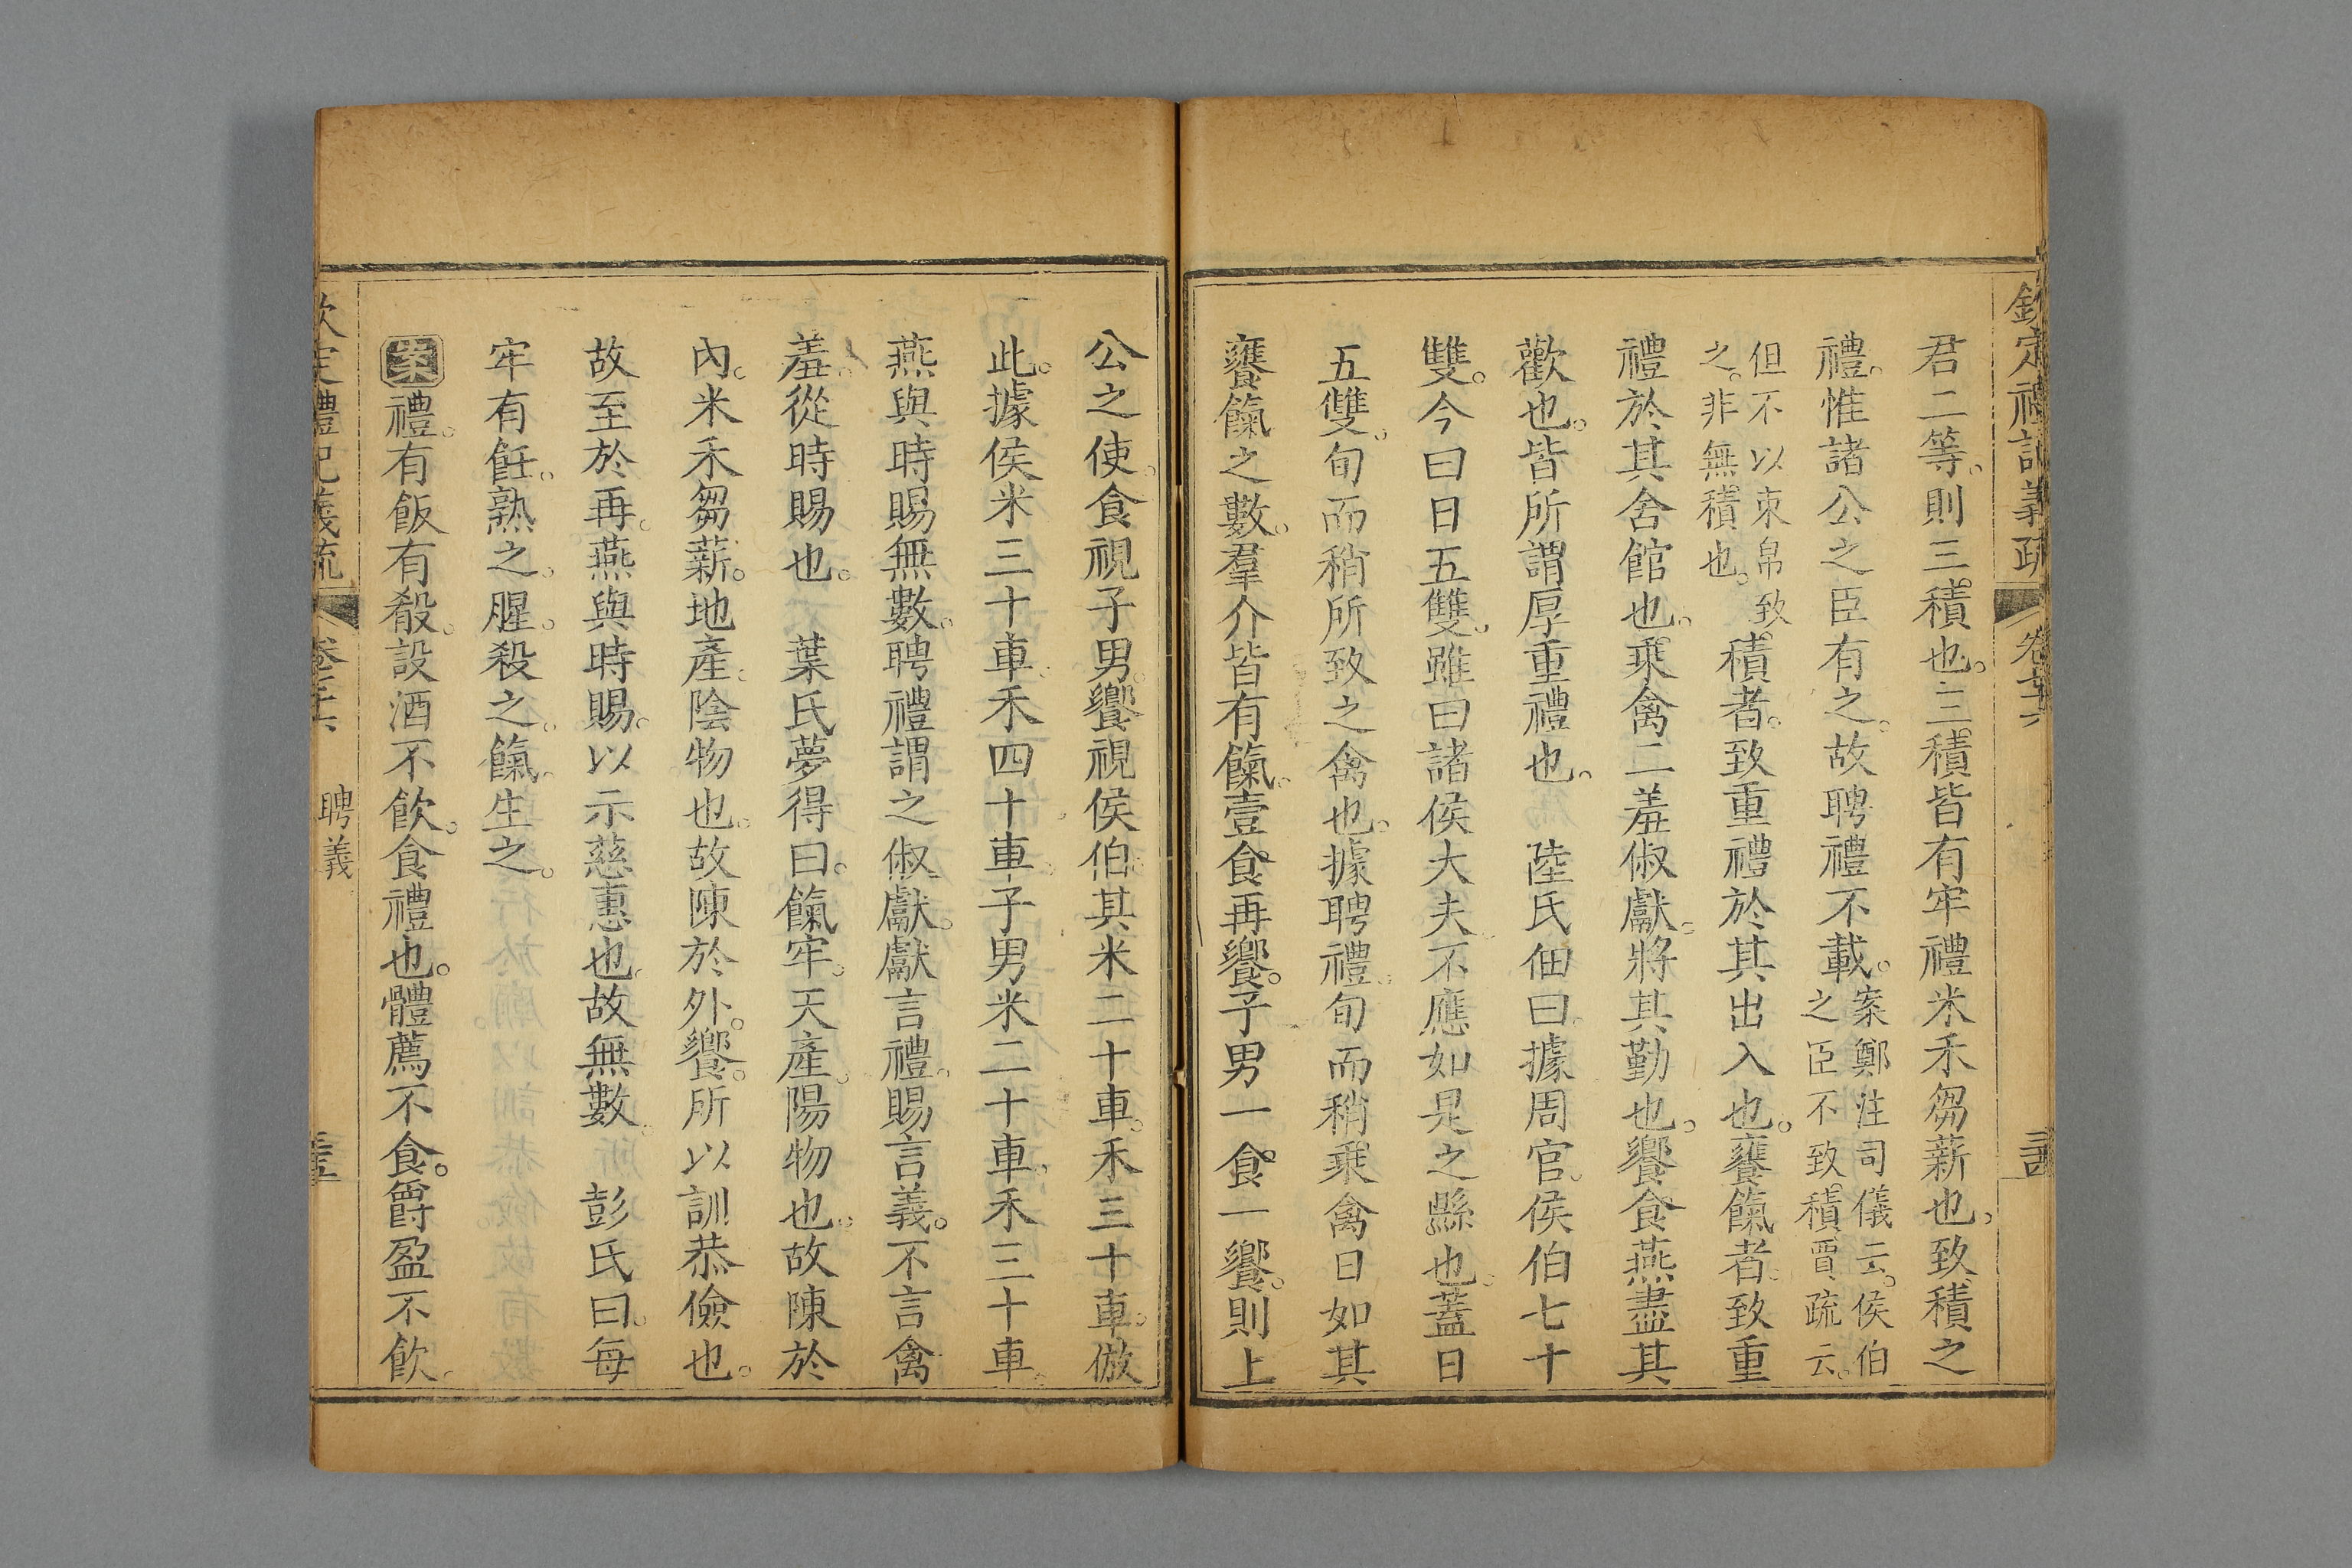 欽定禮記義疏 卷 
君二等。則三積也。三積皆有牢禮米禾芻薪也。致積之
禮。惟諸公之臣有之。故聘禮不載。案鄭注司儀云。侯伯
之臣不致積。賈疏云。
但不以束帛致
之。非無積也。積者。致重禮於其出入也。饔餼者。致重
禮於其舍館也。乘禽二羞俶獻。將其勤也。饗食燕盡其
歡也。皆所謂厚重禮也。 陸氏佃曰。據周官。侯伯七十
雙。今曰日五雙。雖曰諸侯大夫。不應如是之縣也。蓋日
五雙。旬而稍所致之禽也。據聘禮。旬而稍。乘禽日如其
饔餼之數。羣介皆有餼。壹食再饗。子男一食一饗。則上
公之使。食視子男。饗視侯伯。其米二十車。禾三十車。倣
此。據侯米三十車。禾四十車。子男米二十車。禾三十車。
燕與時賜無數。聘禮謂之俶獻。獻言禮。賜言義。不言禽
羞。從時賜也。 葉氏夢得曰。餼牢。天產。陽物也。故陳於
內。米禾芻薪。地產。陰物也。故陳於外。饗。所以訓恭儉也。
故至於再。燕與時賜。以示慈惠也。故無數。 彭氏曰。每
牢有飪。熟之。腥。殺之。餼。生之。
案禮。有飯有殽。設酒不飲。食禮也。體薦不食。爵盈不飲。
禮記義疏 卷 聘義